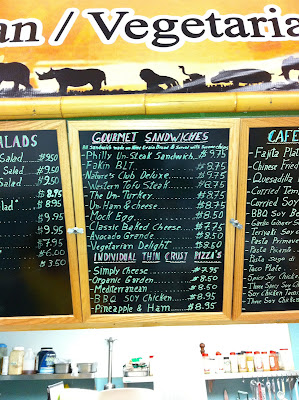 an / Vegetaria
ALADS
Salad....$9.50
Salad....$9.50
$9.50
$8.95
$9.95
$9.95
$7.95
$6.00
$3.50
GOURMET SANDWICHES
All Sandwiches made on Nine Grain Bread & Served with
Philly Un-Steak Sandwich...$9.75
Fakin B.L.T.....$8.75
Nature's Club Deluxe....$9.75
Western Tofu Steak....$8.75
The Un-Turkey....$8.75
Un Ham & Cheese....$8.75
Mock Egg....$8.50
Classic Baked Cheese....$7.75
Avocado Grande....$8.50
Vegetarian Delight....$8.50
INDIVIDUAL THIN CRUST PIZZA'S
Simply Cheese....$7.95
Organic Garden....$8.50
Mediterranean....$8.50
BBQ Soy Chicken....$8.95
Pineapple & Ham....$8.95
CAFE
Fajita Plat
Chinese Fried
Quesadilla
Curried Tem
Curried Tof
BBQ Soy Be
Teriyaki Soy
Pasta Primave
Pasta
Pasta
Taco Plate
Spicy Soy Chic
Three Spicy Soy
Soy Chicken
Three Soy Chick